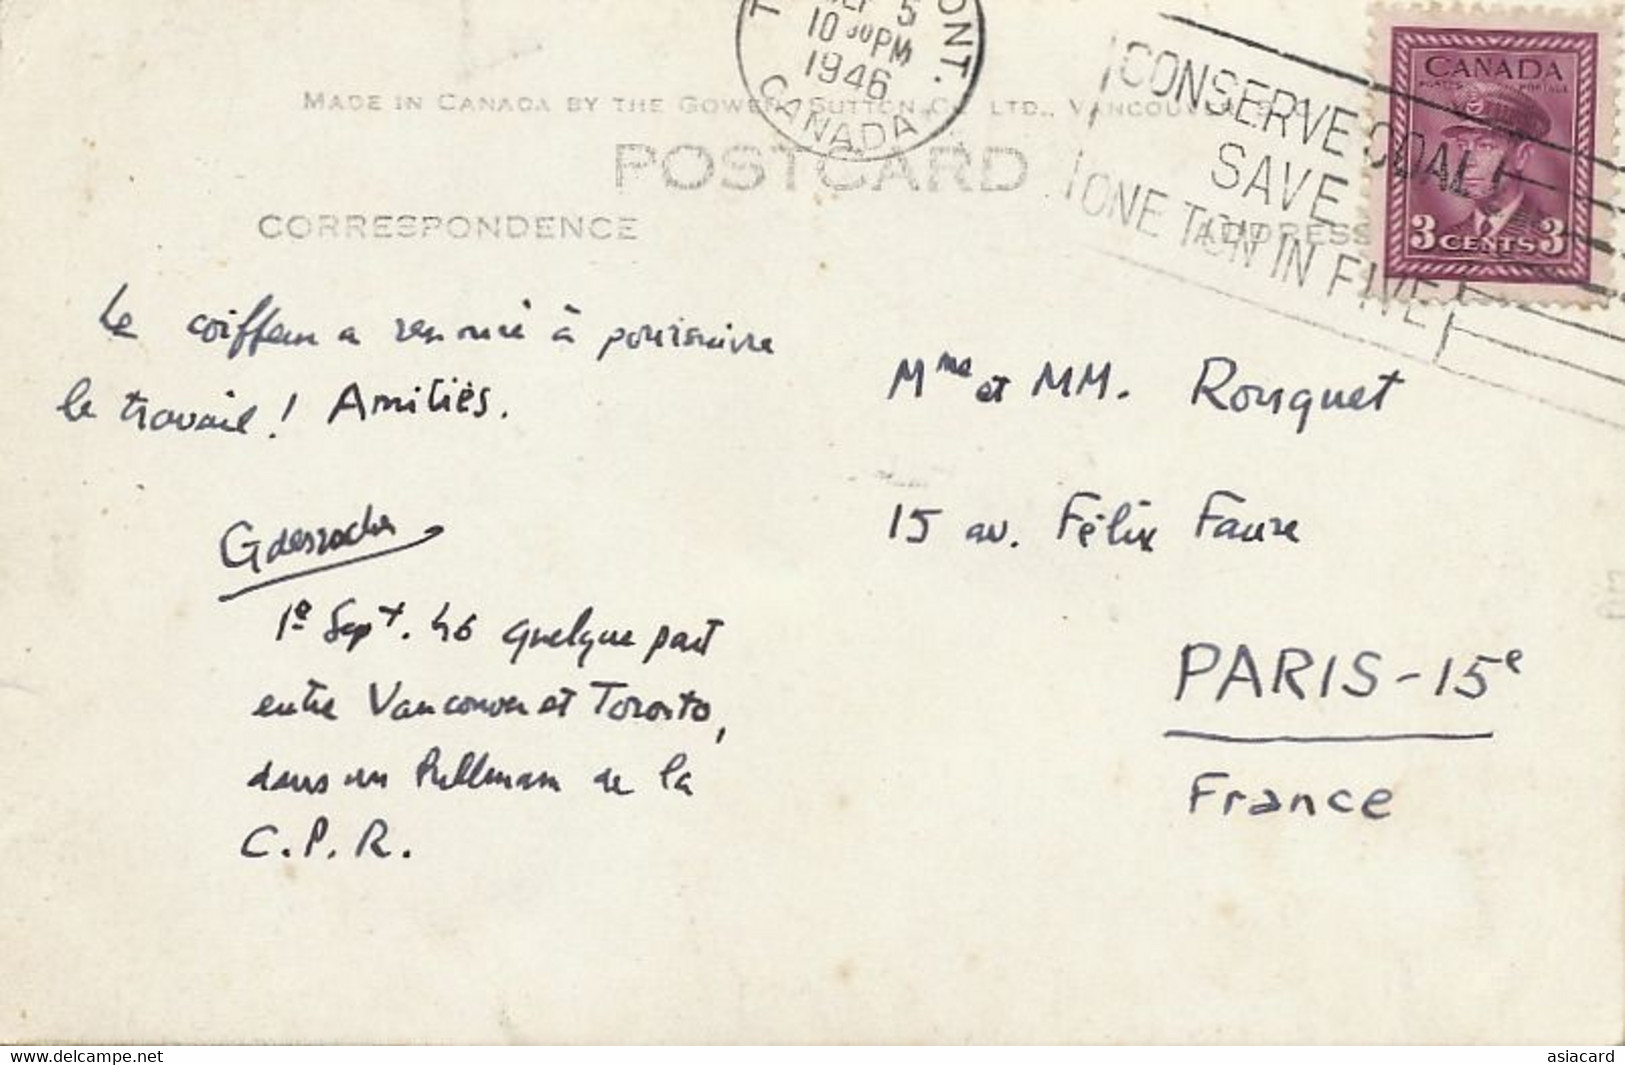 ONT.
SEP 5
10 30 PM
1946
CANADA
CONSERVE COAL
SAVE
ONE TON IN FIVE
CANADA
POSTES POSTAGE
3 CENTS 3
MADE IN CANADA BY THE GOWEN SUTTON CO. LTD., VANCOUVER, B.C.
POSTCARD
CORRESPONDENCE
ADDRESS
Le coiffeur a renoncé à poursuivre
le travail! Amitiés.
GDesroches
1º Sept. 46 quelque part
entre Vancouver et Toronto,
dans un Pullman de la
C.P.R.
Mme et MM. Rouquet
15 av. Félix Faure
PARIS-15e
France
www.delcampe.net
asiacard